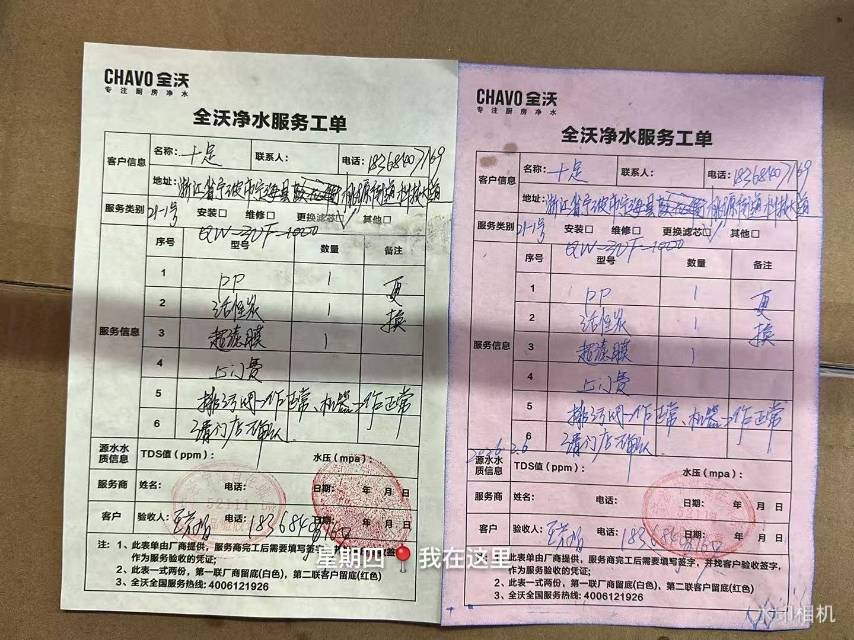 CHAVO 全沃
专 注 厨 房 净 水
全沃净水服务工单
客户信息 名称: 十足 联系人: 电话:
地址: 浙江省宁波市宁海县 桃源街道 科技大道
服务类别 21-1号 安装□ 维修□ 更换滤芯□ 其他□
QW-32F-1000
序号 型号 数量 备注
服务信息
1 PP 1 更
2 活性炭 1 换
3 超滤膜 1
4 上门费
5 排污阀工作正常、机器工作正常
6 请门店确认
源水水质信息 TDS值(ppm): 水压(mpa):
服务商 姓名: 电话: 日期: 年 月 日
客户 验收人: 电话: 日期:
注: 1、此表单由厂商提供,服务商完工后需要填写签字
作为服务验收的凭证;
2、此表一式两份,第一联厂商留底(白色),第二联客户留底(红色)
3、全沃全国服务热线:4006121926
CHAVO 全沃
专 注 厨 房 净 水
全沃净水服务工单
客户信息 名称: 十足 联系人: 电话:
地址: 浙江省宁波市宁海县 桃源街道 科技大道
服务类别 21-1号 安装□ 维修□ 更换滤芯□ 其他□
QW-32F-1000
序号 型号 数量 备注
服务信息
1 PP 1 更
2 活性炭 1 换
3 超滤膜 1
4 上门费
5 排污阀工作正常、机器工作正常
6 请门店确认
2026.2.6
源水水质信息 TDS值(ppm): 水压(mpa):
服务商 姓名: 电话: 日期: 年 月 日
客户 验收人: 电话: 日期: 年 月 日
注: 1、此表单由厂商提供,服务商完工后需要填写签字,并找客户验收签字,
作为服务验收的凭证;
2、此表一式两份,第一联厂商留底(白色),第二联客户留底(红色)
3、全沃全国服务热线:4006121926
星期四 我在这里